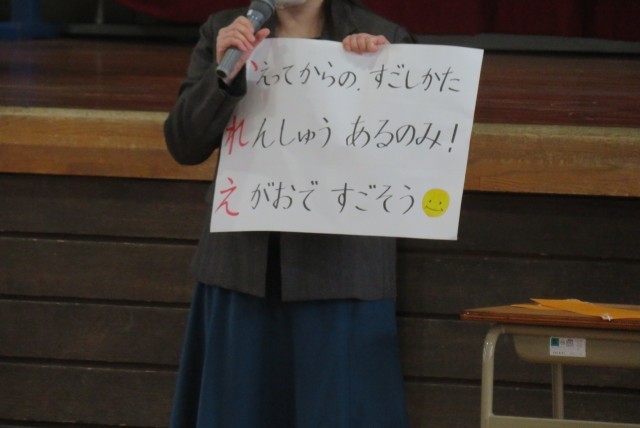 かえってからの、すごしかた
れんしゅう あるのみ!
えがおで すごそう